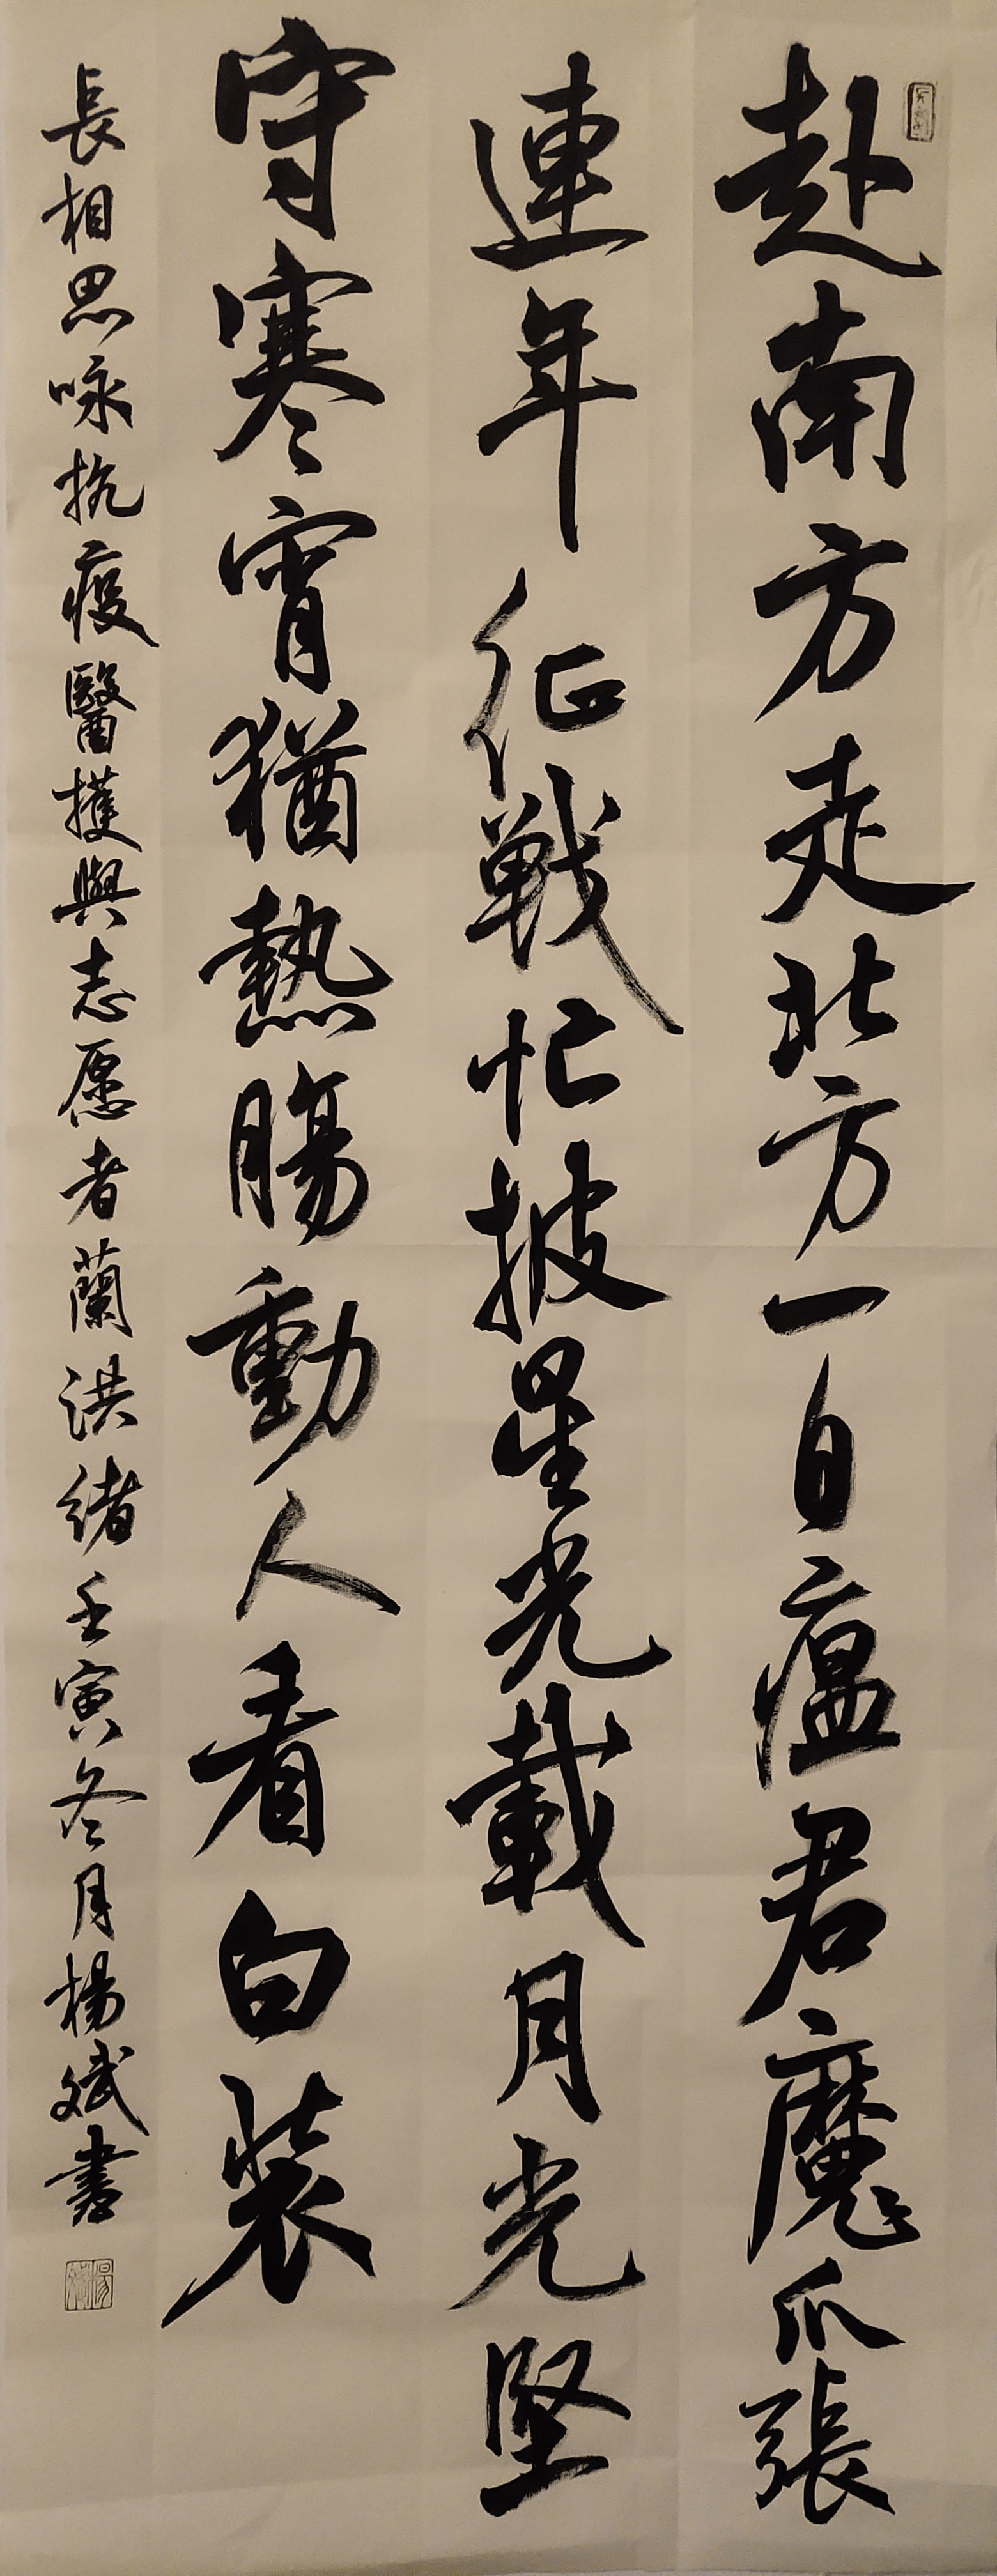 赴南方走北方一自瘟君魔爪張
連年征戰忙披星光載月光堅
守寒宵猶熱腸動人看白裝
長相思咏抗疫醫護與志愿者蘭洪緒壬寅冬月楊斌書